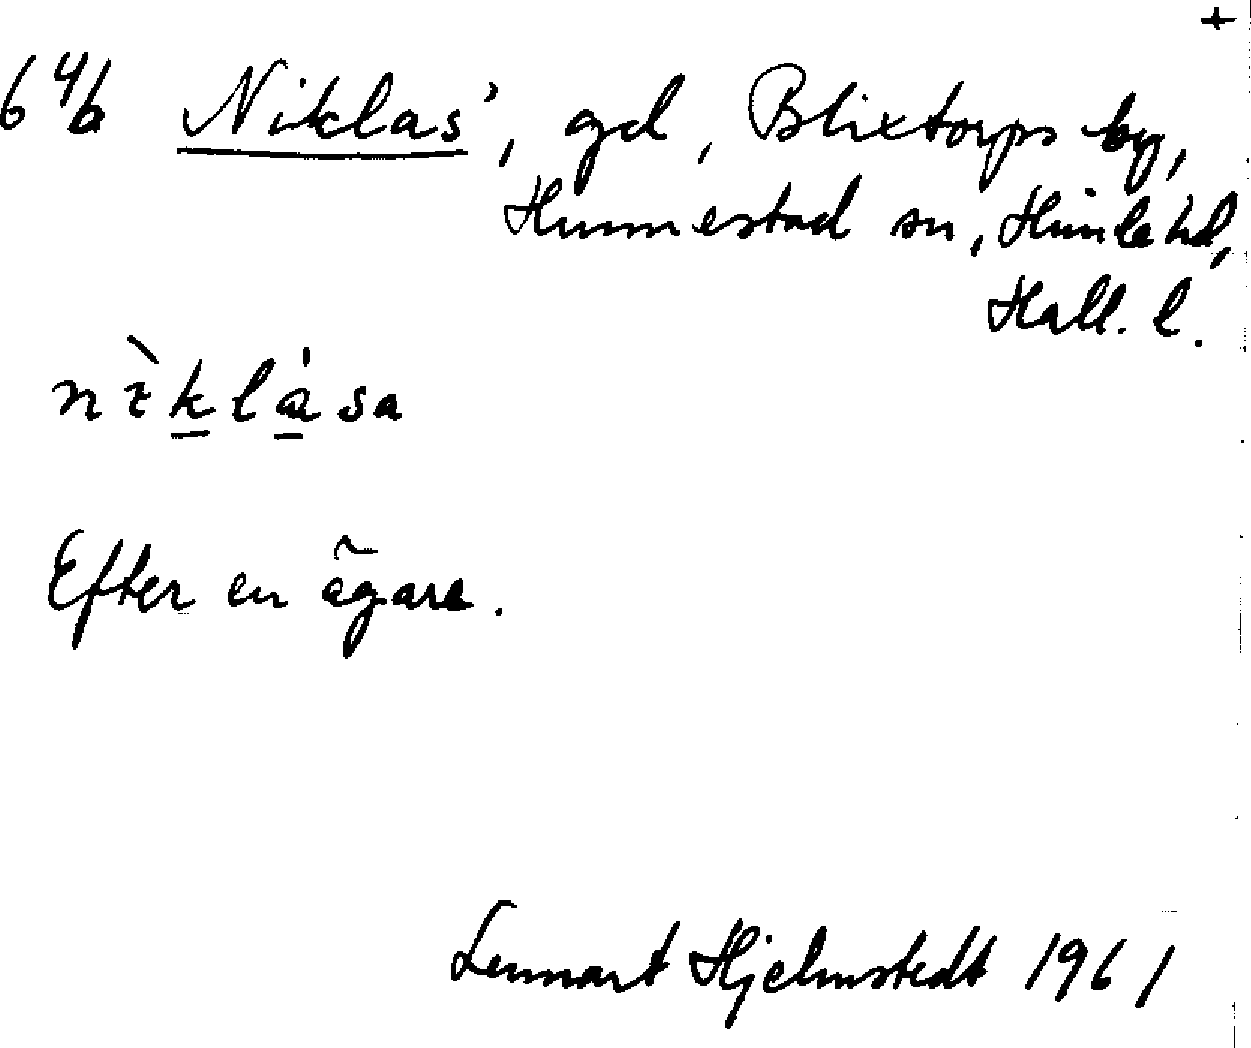 +
6 4/6 Niklas', gd, Blixtorps by,
Hunnestad sn, Himle hd,
Hall. l.
nìklása
Efter en ägare.
Lennart Hjelmstedt 1961